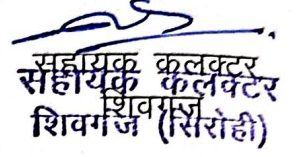 सहायक कलक्टर
सहायक कलक्टर
शिवगंज
शिवगंज (सिरोही)